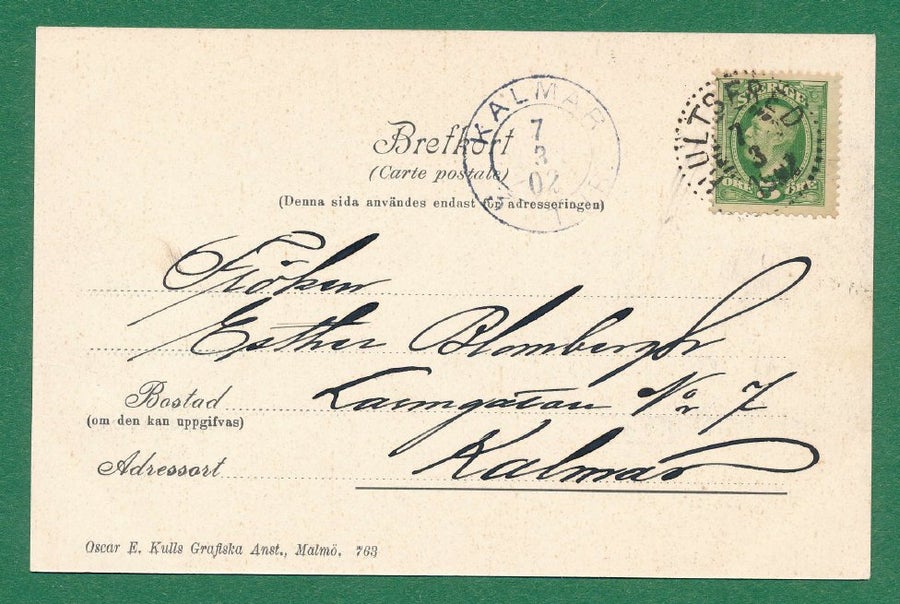 Brefkort
(Carte postale)
(Denna sida användes endast för adresseringen)
KALMAR
7
3
02
HULTSFRED
7
3
SVERIGE
ÖRE 5 ÖRE
Fröken
Esther Blombergh
Larmgatan No 7
Kalmar
Bostad
(om den kan uppgifvas)
Adressort
Oscar E. Kulls Grafiska Anst., Malmö. 763